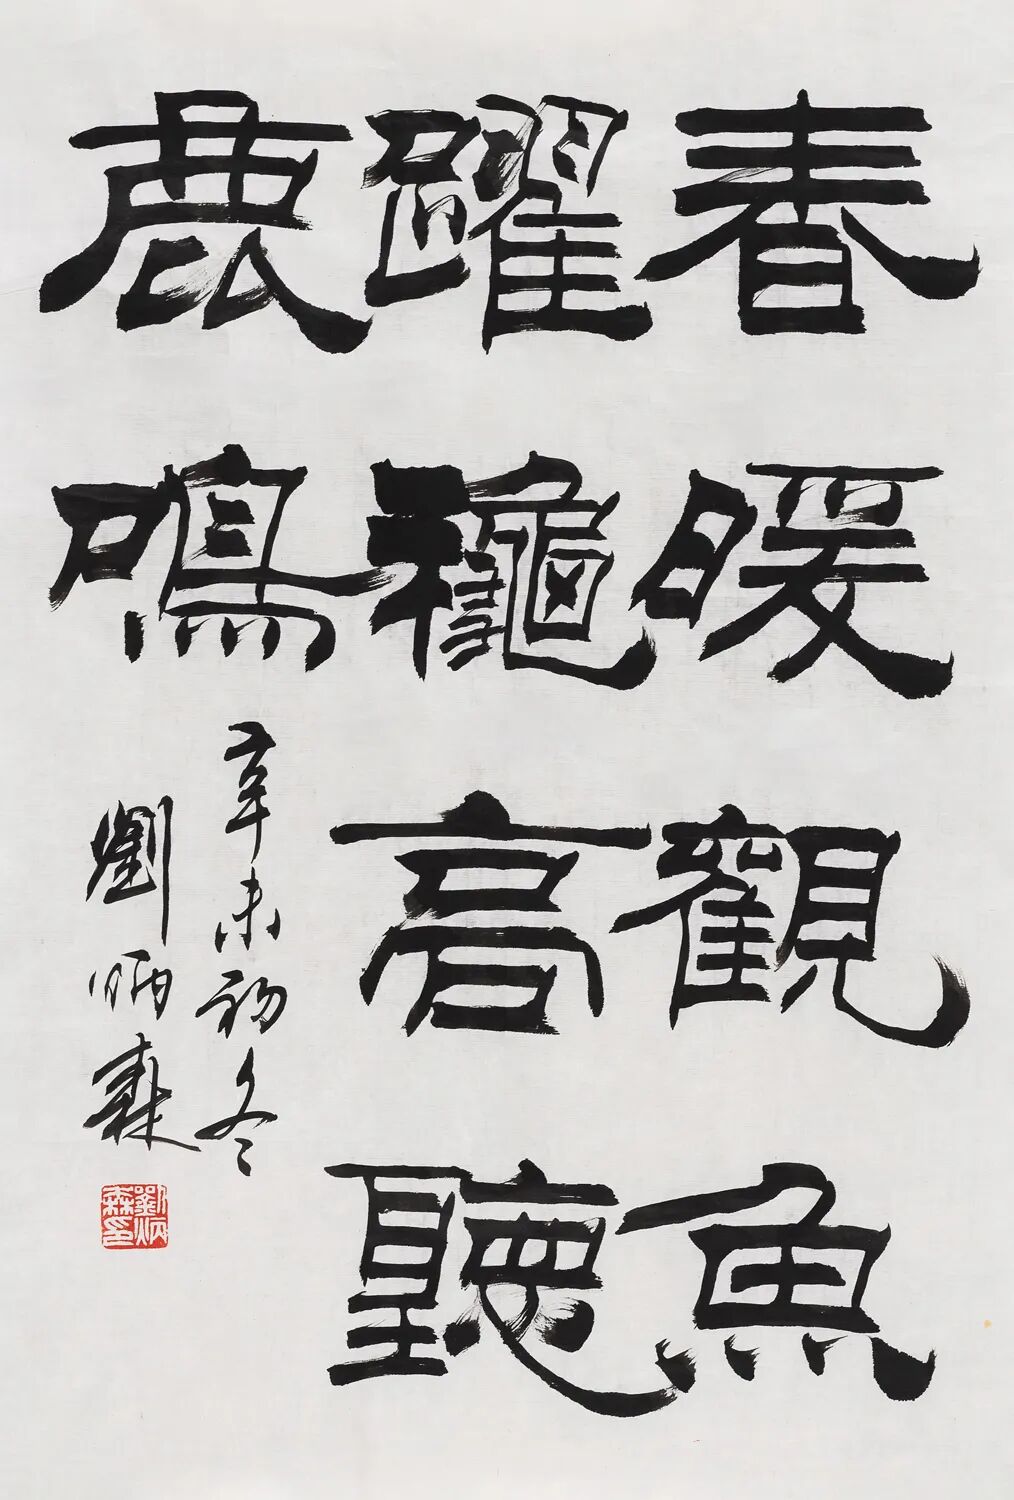 春暖觀魚
躍龝高聽
鹿鳴
辛未初冬
劉炳森
劉炳
森印